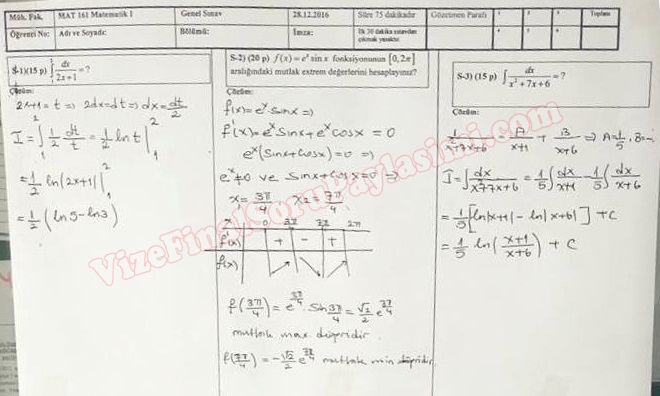 Müh. Fak. MAT 161 Matematik I Genel Sınav 28.12.2016 Süre 75 dakikadır Gözetmen Parafı 1 2 3 Toplam
Öğrenci No: Adı ve Soyadı: Bölümü: İmza: İlk 30 dakika sınavdan çıkmak yasaktır. 4 5 6
S-1)(15 p) ∫₁² dx/(2x+1) = ?
Çözüm:
2x+1 = t ⇒ 2dx = dt ⇒ dx = dt/2
I = ∫ 1/2 dt/t = 1/2 ln t |₁²
= 1/2 ln(2x+1) |₁²
= 1/2 (ln5 - ln3)
S-2) (20 p) f(x) = eˣ sin x fonksiyonunun [0, 2π]
aralığındaki mutlak extrem değerlerini hesaplayınız?
Çözüm:
f(x) = eˣ sinx ⇒
f'(x) = eˣ sinx + eˣ cosx = 0
eˣ(sinx + cosx) = 0 ⇒
eˣ ≠ 0 ve sinx + cosx = 0 ⇒
x = 3π/4 x₂ = 7π/4
x 0 3π/4 7π/4 2π
f'(x) + - +
f(x)
f(3π/4) = e^(3π/4) . sin 3π/4 = √2/2 e^(3π/4)
mutlak max. değeridir
f(7π/4) = -√2/2 e^(7π/4) mutlak min değeridir.
S-3) (15 p) ∫ dx/(x²+7x+6) = ?
Çözüm:
1/(x²+7x+6) = A/(x+1) + B/(x+6) ⇒ A = 1/5, B = -
I = ∫ dx/(x²+7x+6) = 1/5 ∫ dx/(x+1) - 1/5 ∫ dx/(x+6)
= 1/5 [ln|x+1| - ln|x+6|] + C
= 1/5 ln((x+1)/(x+6)) + C
www.VizeFinalSoruPaylasimi.com